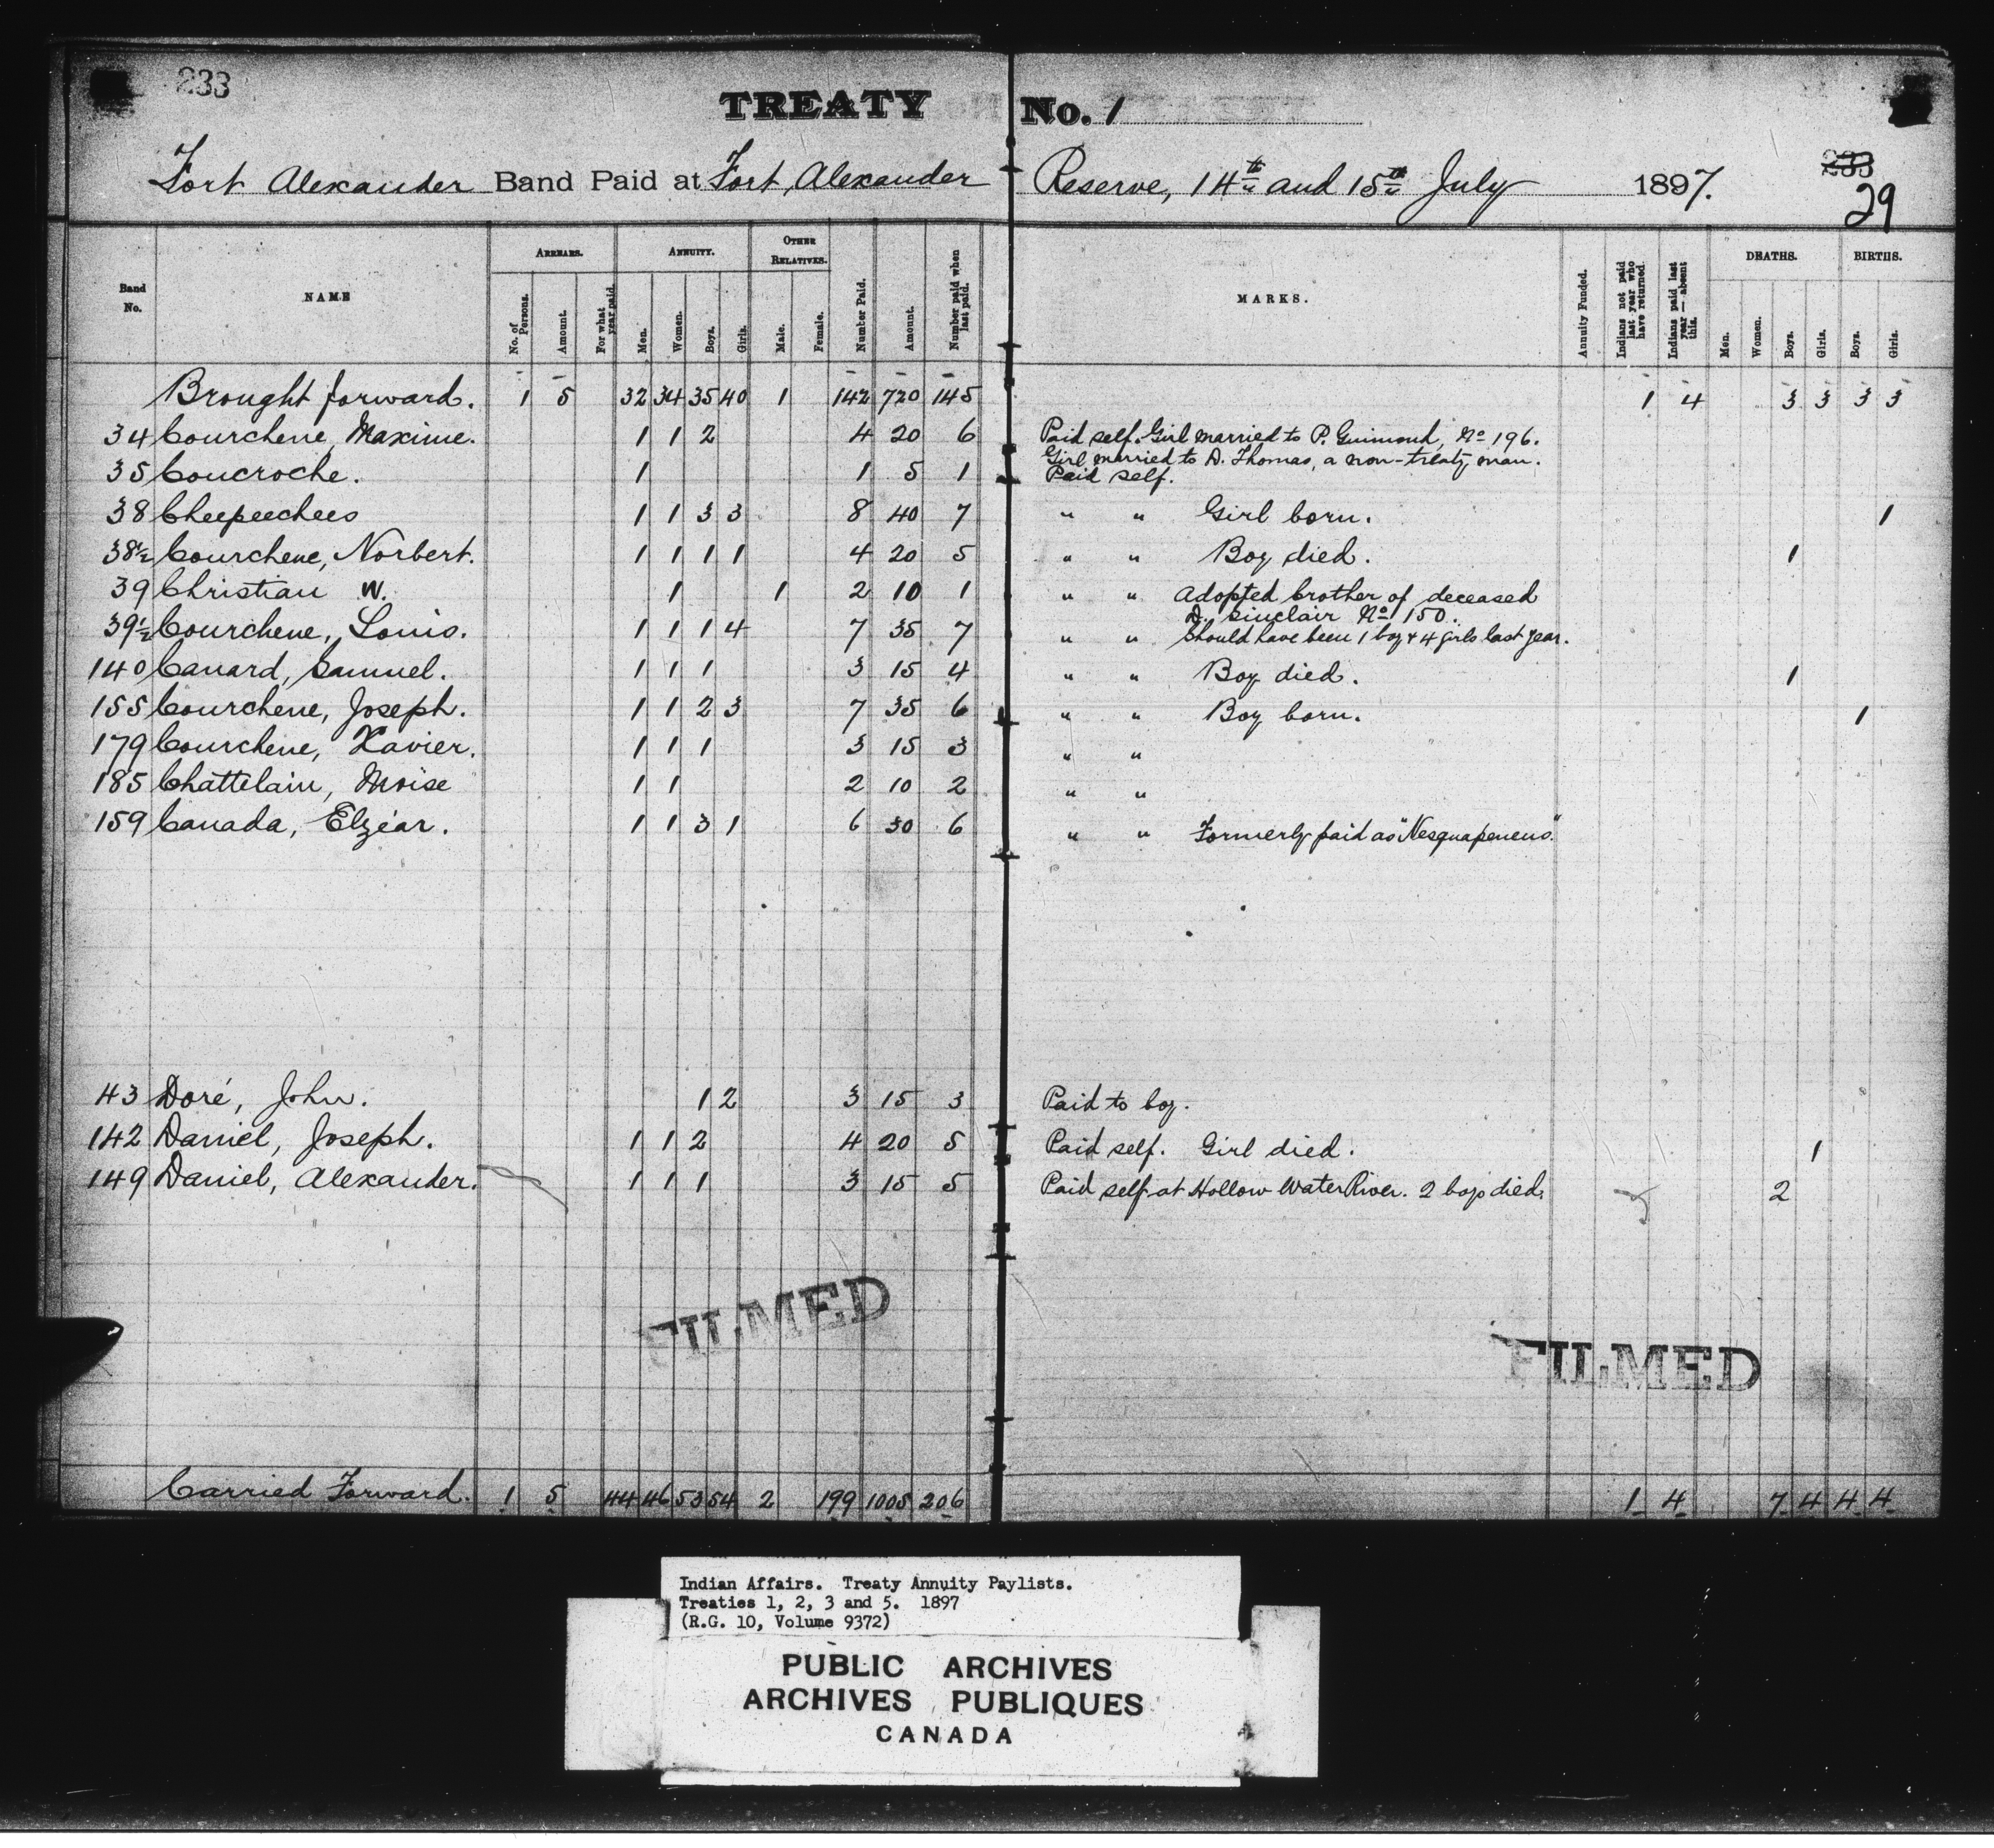 233
TREATY No. 1
Fort Alexander Band Paid at Fort Alexander Reserve, 14th and 15th July 1897.
233
29
Band No. NAME ARREARS. No. of Persons. Amount. For what year paid. ANNUITY. Men. Women. Boys. Girls. OTHER RELATIVES. Male. Female. Number Paid. Amount. Number paid when last paid. MARKS. Annuity Funded. Indians not paid last year who have returned. Indians paid last year — absent this. DEATHS. Men. Women. Boys. Girls. BIRTHS. Boys. Girls.
Brought forward. 1 5 32 34 35 40 1 142 720 145 1 4 3 3 3 3
34 Courchene, Maxime. 1 1 2 4 20 6 Paid self. Girl married to P. Guimond, No 196.
Girl married to D. Thomas, a non-treaty man.
35 Coucroche. 1 1 5 1 Paid self.
38 Cheepeechees 1 1 3 3 8 40 7 " " Girl born. 1
38½ Courchene, Norbert. 1 1 1 1 4 20 5 " " Boy died. 1
39 Christian W. 1 1 2 10 1 " " Adopted brother of deceased
D. Sinclair No 150.
39½ Courchene, Louis. 1 1 1 4 7 35 7 " " Should have been 1 boy & 4 girls last year.
140 Canard, Samuel. 1 1 1 3 15 4 " " Boy died. 1
155 Courchene, Joseph. 1 1 2 3 7 35 6 " " Boy born. 1
179 Courchene, Xavier. 1 1 1 3 15 3 " "
185 Chattelain, Moise 1 1 2 10 2 " "
159 Canada, Elzéar. 1 1 3 1 6 30 6 " " Formerly paid as "Nesquapeneus."
43 Doré, John. 1 2 3 15 3 Paid to boy.
142 Daniel, Joseph. 1 1 2 4 20 5 Paid self. Girl died. 1
149 Daniel, Alexander. 1 1 1 3 15 5 Paid self at Hollow Water River. 2 boys died. 2
FILMED
FILMED
Carried Forward. 1 5 44 46 53 54 2 199 1005 206 1 4 7 4 4 4
Indian Affairs. Treaty Annuity Paylists.
Treaties 1, 2, 3 and 5. 1897
(R.G. 10, Volume 9372)
PUBLIC ARCHIVES
ARCHIVES PUBLIQUES
CANADA